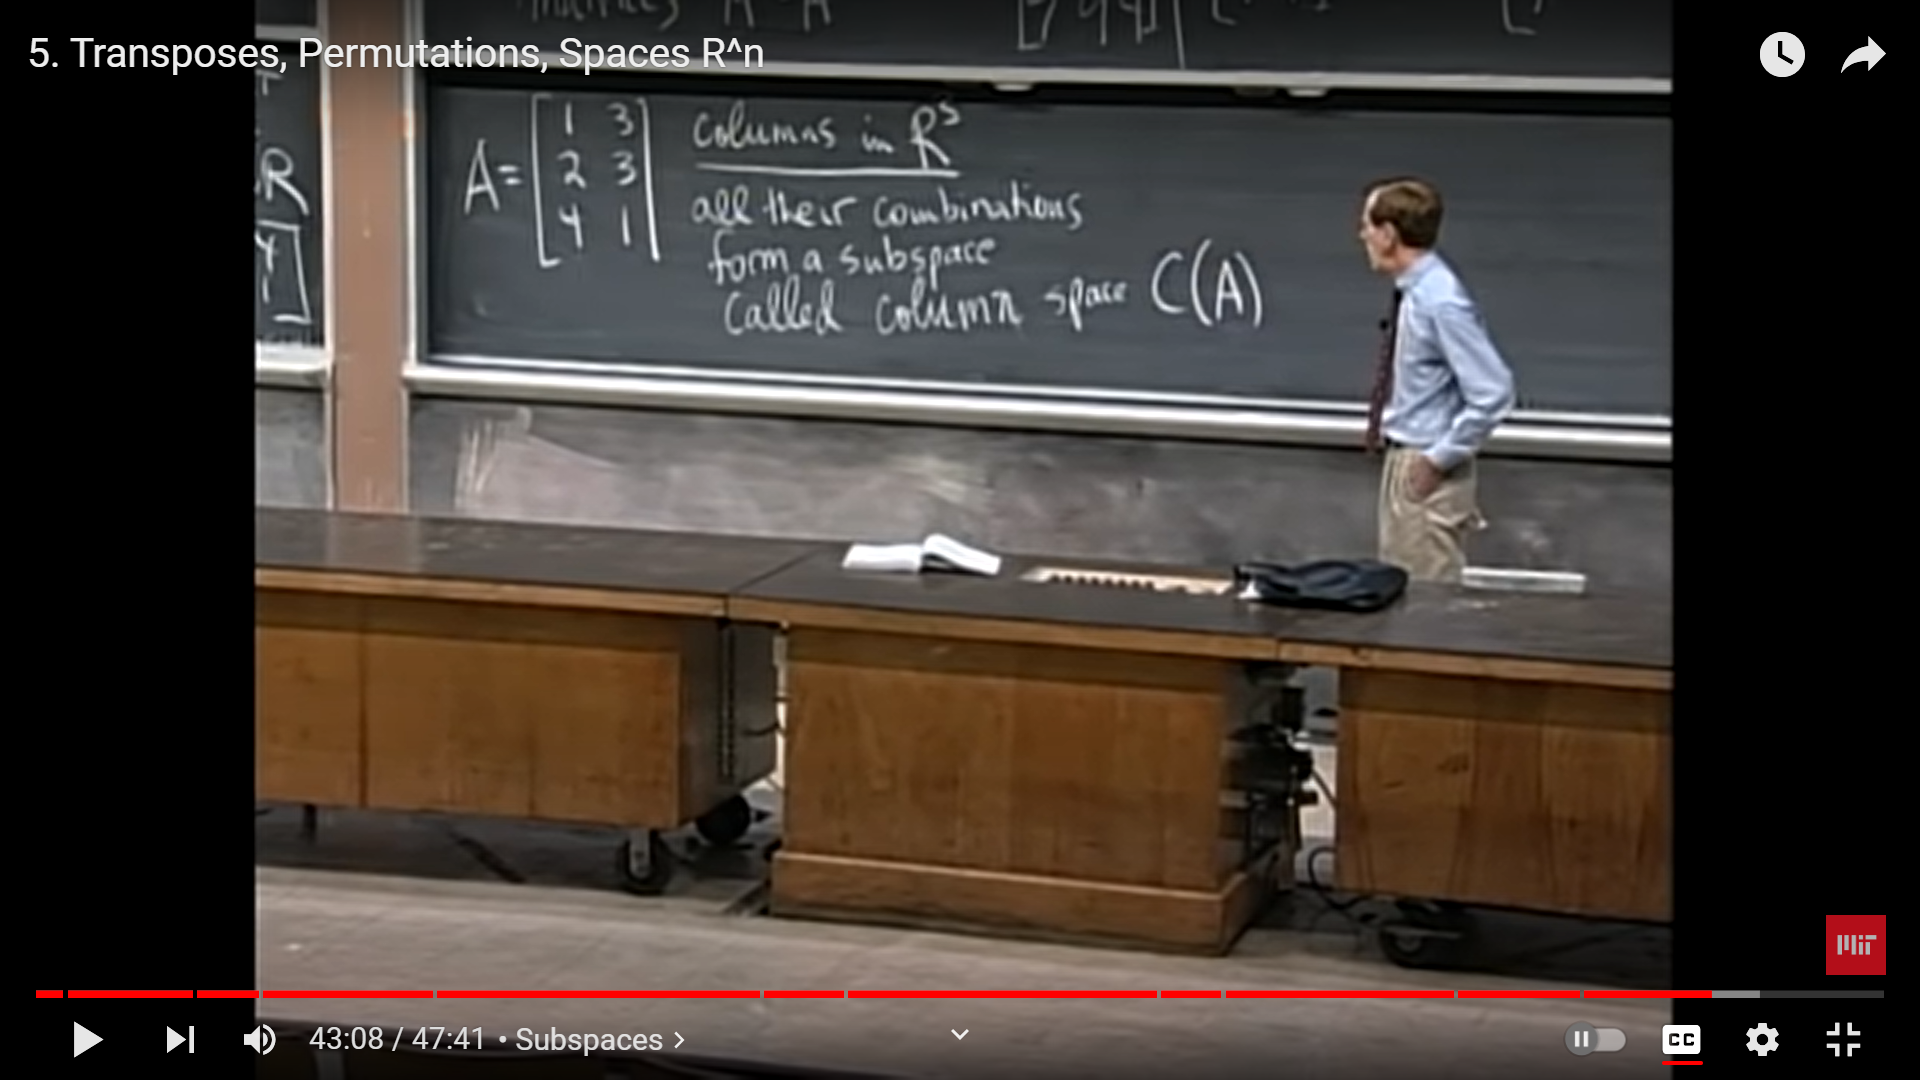 5. Transposes, Permutations, Spaces R^n
A = [1 3
2 3
4 1]
columns in R³
all their combinations
form a subspace
called column space C(A)
R
4
1
MIT
43:08 / 47:41 • Subspaces >
CC